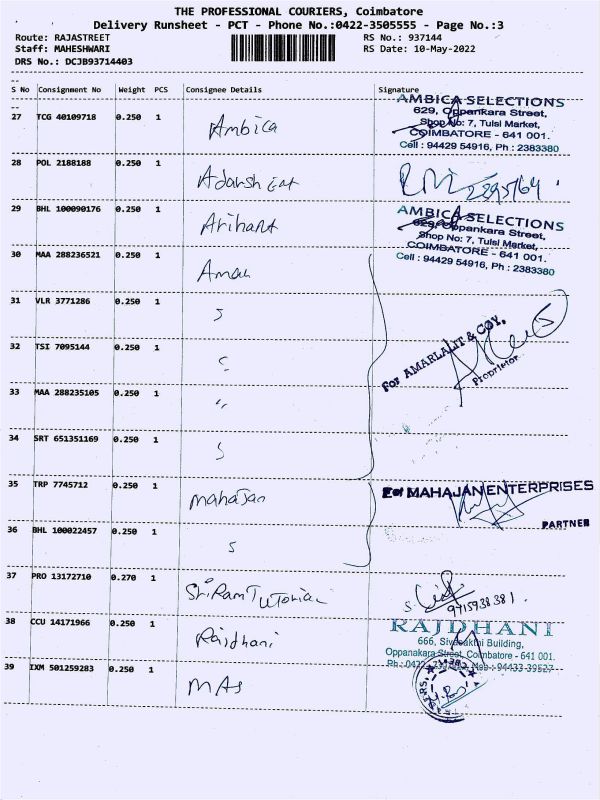 THE PROFESSIONAL COURIERS, Coimbatore
Delivery Runsheet - PCT - Phone No.:0422-3505555 - Page No.:3
Route: RAJASTREET
RS No.: 937144
Staff: MAHESHWARI
RS Date: 10-May-2022
DRS No.: DCJB93714403
S No Consignment No Weight PCS Consignee Details Signature
27 TCG 40109718 0.250 1 Ambica
AMBICA SELECTIONS
629, Oppankara Street,
Shop No: 7, Tulsi Market,
COIMBATORE - 641 001.
Cell : 94429 54916, Ph : 2383380
28 POL 2188188 0.250 1 Adarsh
29 BHL 100090176 0.250 1 Arihant
AMBICA SELECTIONS
629, Oppankara Street,
Shop No: 7, Tulsi Market,
COIMBATORE - 641 001.
Cell : 94429 54916, Ph : 2383380
30 MAA 288236521 0.250 1 Amar
31 VLR 3771286 0.250 1
32 TSI 7095144 0.250 1
For AMARLALIT & COY.
Proprietor
33 MAA 288235105 0.250 1 "
34 SRT 651351169 0.250 1
35 TRP 7745712 0.250 1 mahajan
For MAHAJAN ENTERPRISES
PARTNER
36 BHL 100022457 0.250 1
37 PRO 13172710 0.270 1 Sri Ram Tutorial
9715938381
38 CCU 14171966 0.250 1 Rajdhani
RAJDHANI
666, Sivasakthi Building,
Oppanakara Street, Coimbatore - 641 001.
Mob : 94433 39527
39 IXM 501259283 0.250 1 MAS